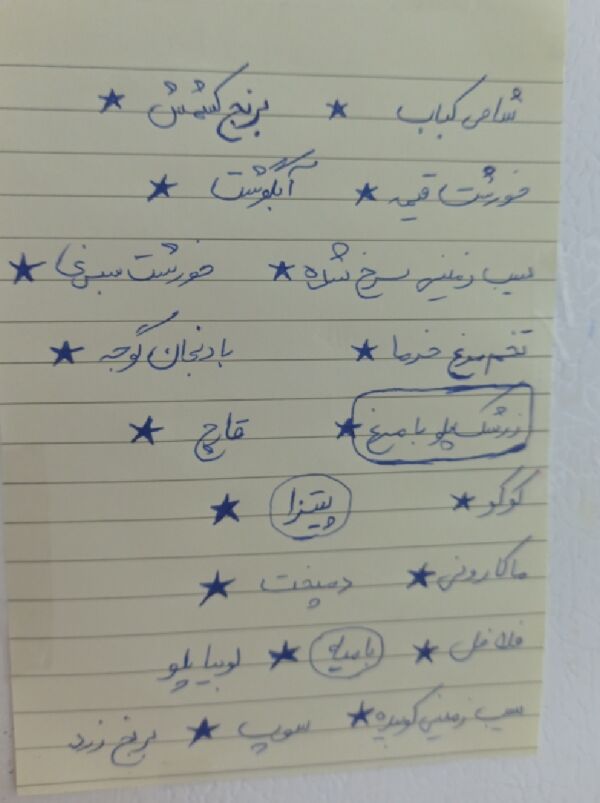 شامی کباب ★ برنج کشمش ★
خورشت قیمه ★ آبگوشت ★
سیب زمینی سرخ شده ★ خورشت سبزی ★
تخم مرغ خرما ★ بادنجان گوجه ★
زرشک پلو با مرغ ★ قارچ ★
کوکو ★ پیتزا ★
ماکارونی ★ دمپخت ★
فلافل ★ بامیه ★ لوبیا پلو
سیب زمینی کوبیده ★ سوپ ★ برنج زرد